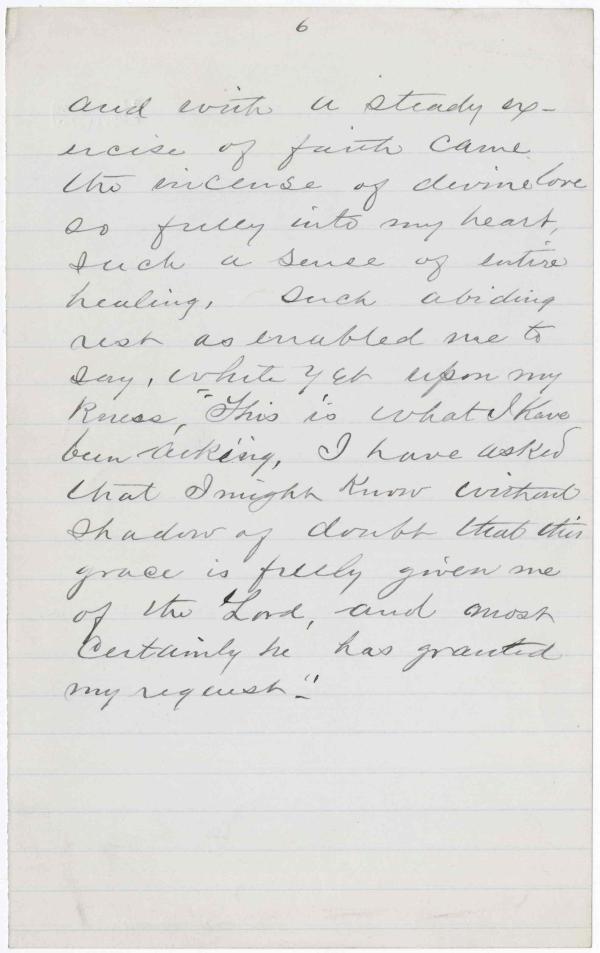 6
and with a steady ex-
ercise of faith came
the incense of devine love
so fully into my heart,
such a sense of entire
healing, such abiding
rest as enabled me to
say, while yet upon my
knees, "This is what I have
been asking, I have asked
that I might know without
shadow of doubt that this
grace is freely given me
of the Lord, and most
certainly he has granted
my request."